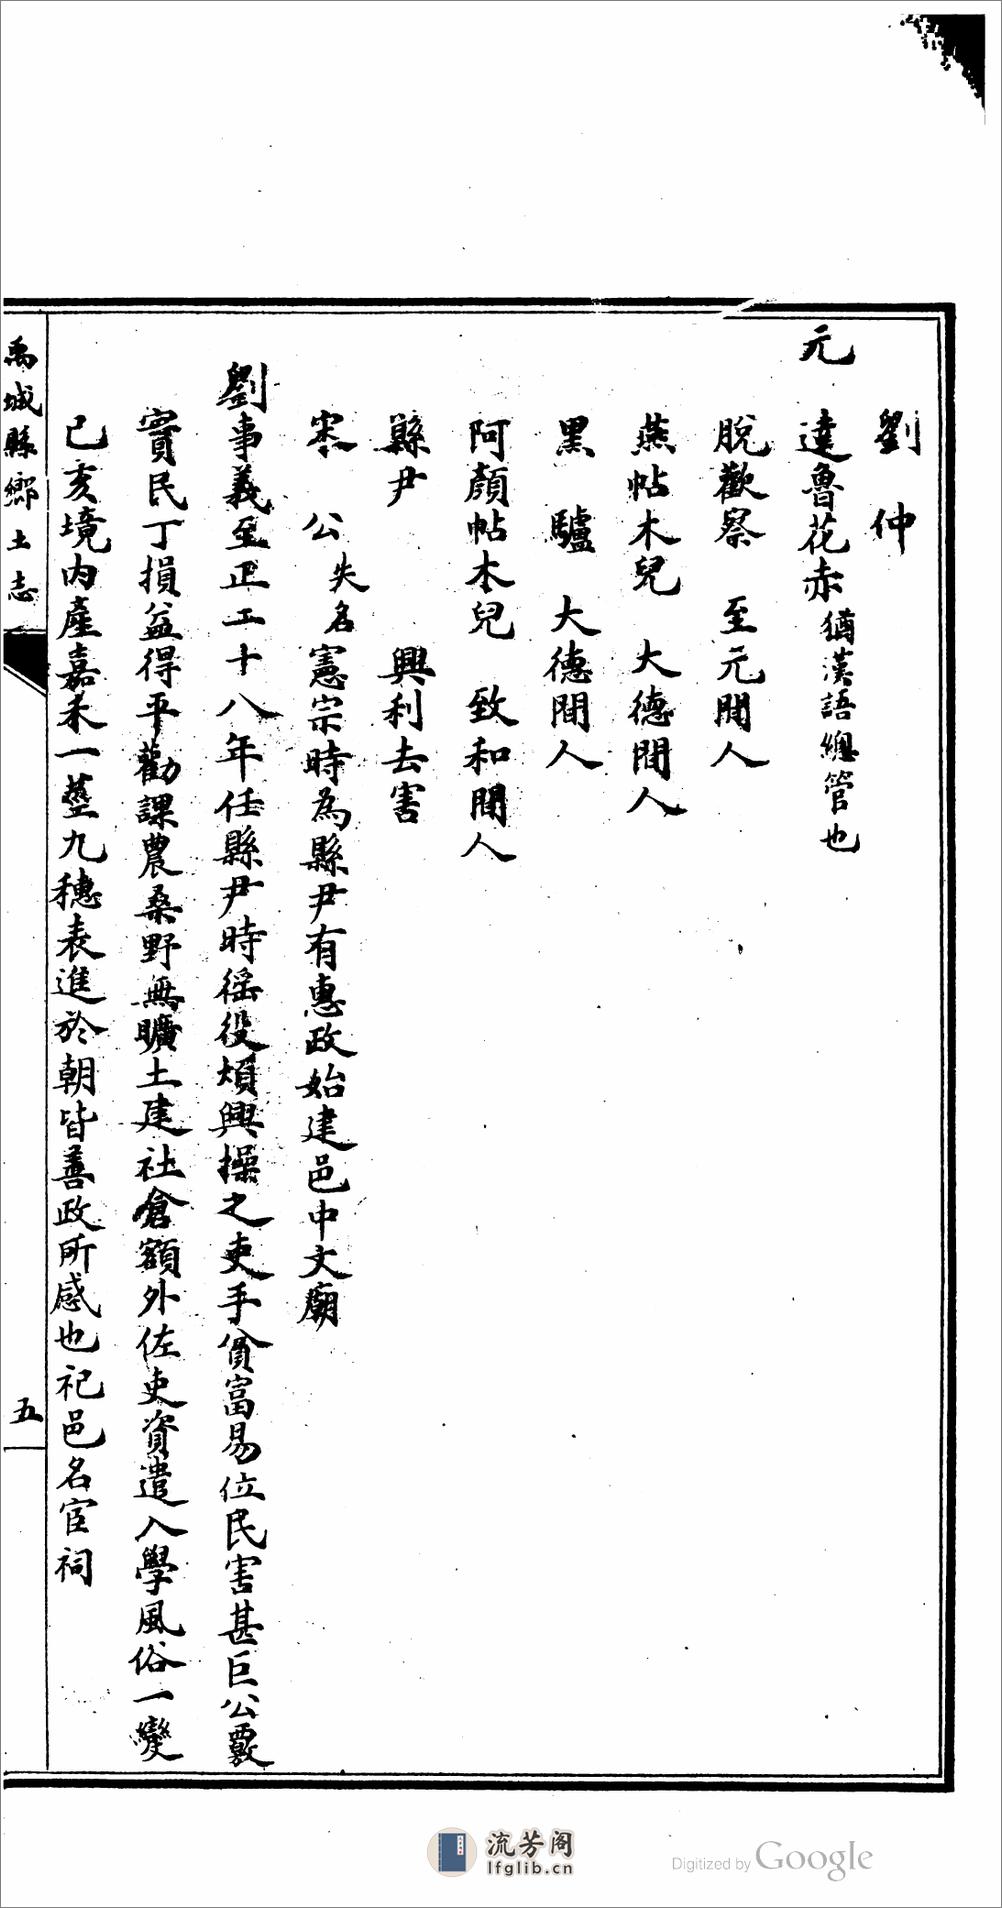 劉　仲
元　達魯花赤猶漢語總管也
脫歡察　至元間人
燕帖木兒　大德間人
黑　驢　大德間人
阿顏帖木兒　致和間人
縣尹　　興利去害
宋　公失名憲宗時為縣尹有惠政始建邑中文廟
劉事義至正工十八年任縣尹時徭役煩興操之吏手貧富易位民害甚巨公覈
實民丁損益得平勸課農桑野無曠土建社倉額外佐吏資遣入學風俗一變
己亥境內產嘉禾一莖九穗表進於朝皆善政所感也祀邑名宦祠
禹城縣鄉土志　五
流芳阁
lfglib.cn
Digitized by Google